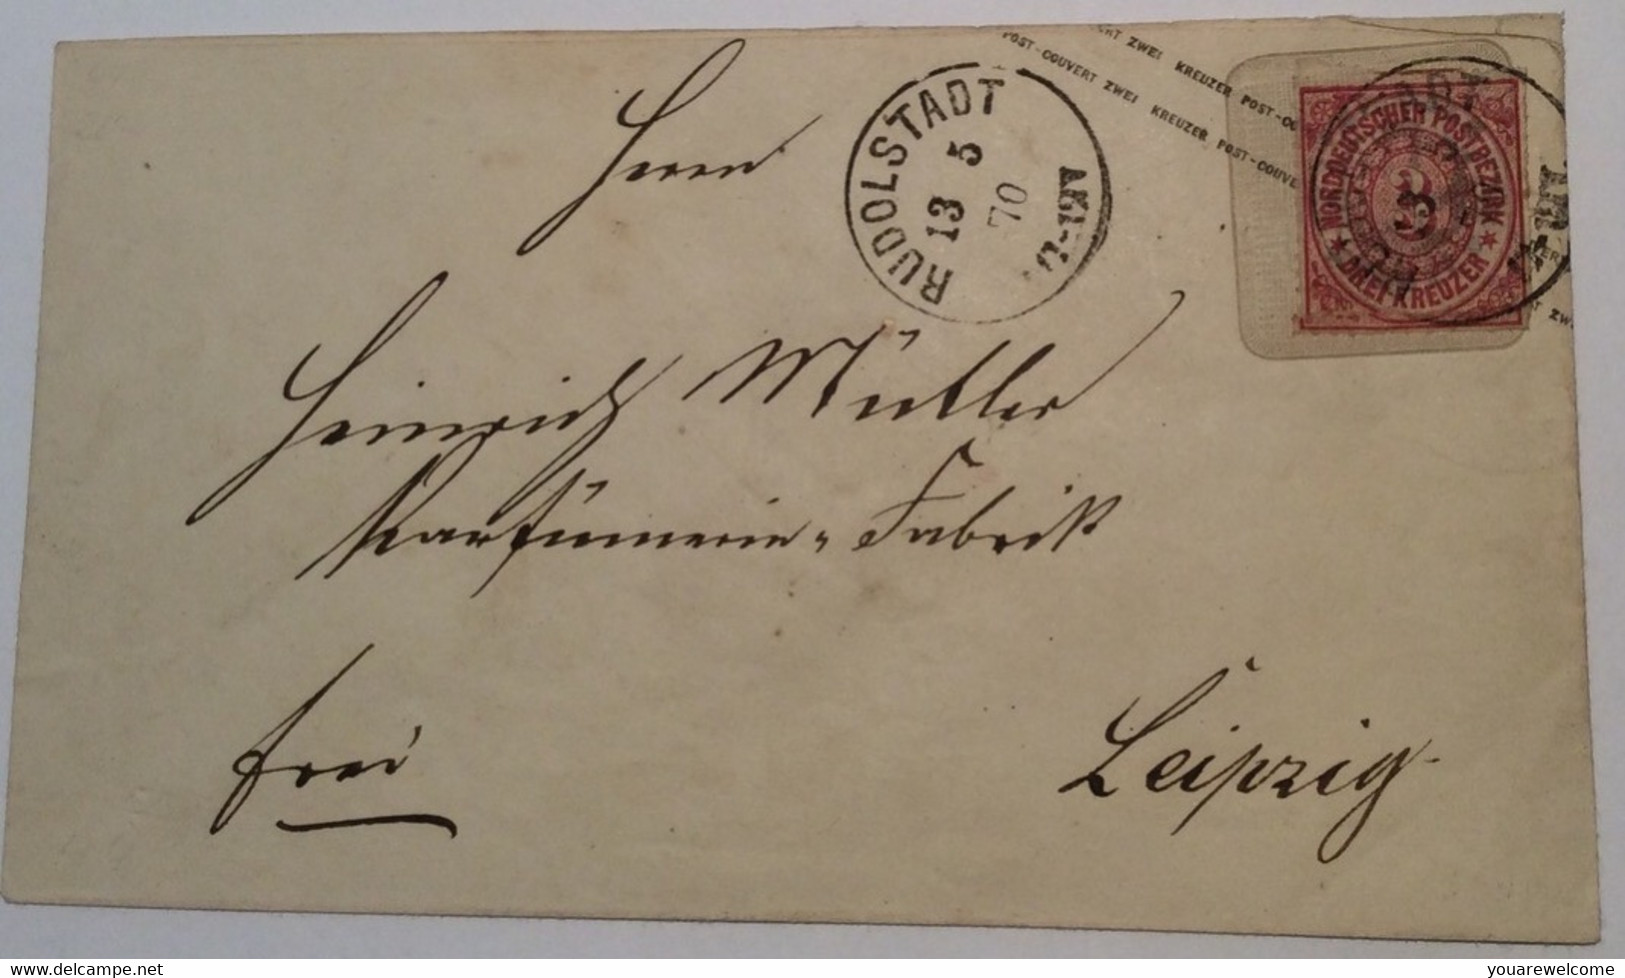 POST-COUVERT ZWEI KREUZER POST-COUVERT ZWEI KREUZER POST-COUVE
ERT ZWEI KREUZER POST-COU
RUDOLSTADT
13 5
70
NORDDEUTSCHER POSTBEZIRK
3
DREI KREUZER
Herrn
Heinrich Müller
Parfümerie-Fabrik
frei
Leipzig.
delcampe.net
youarewelcome